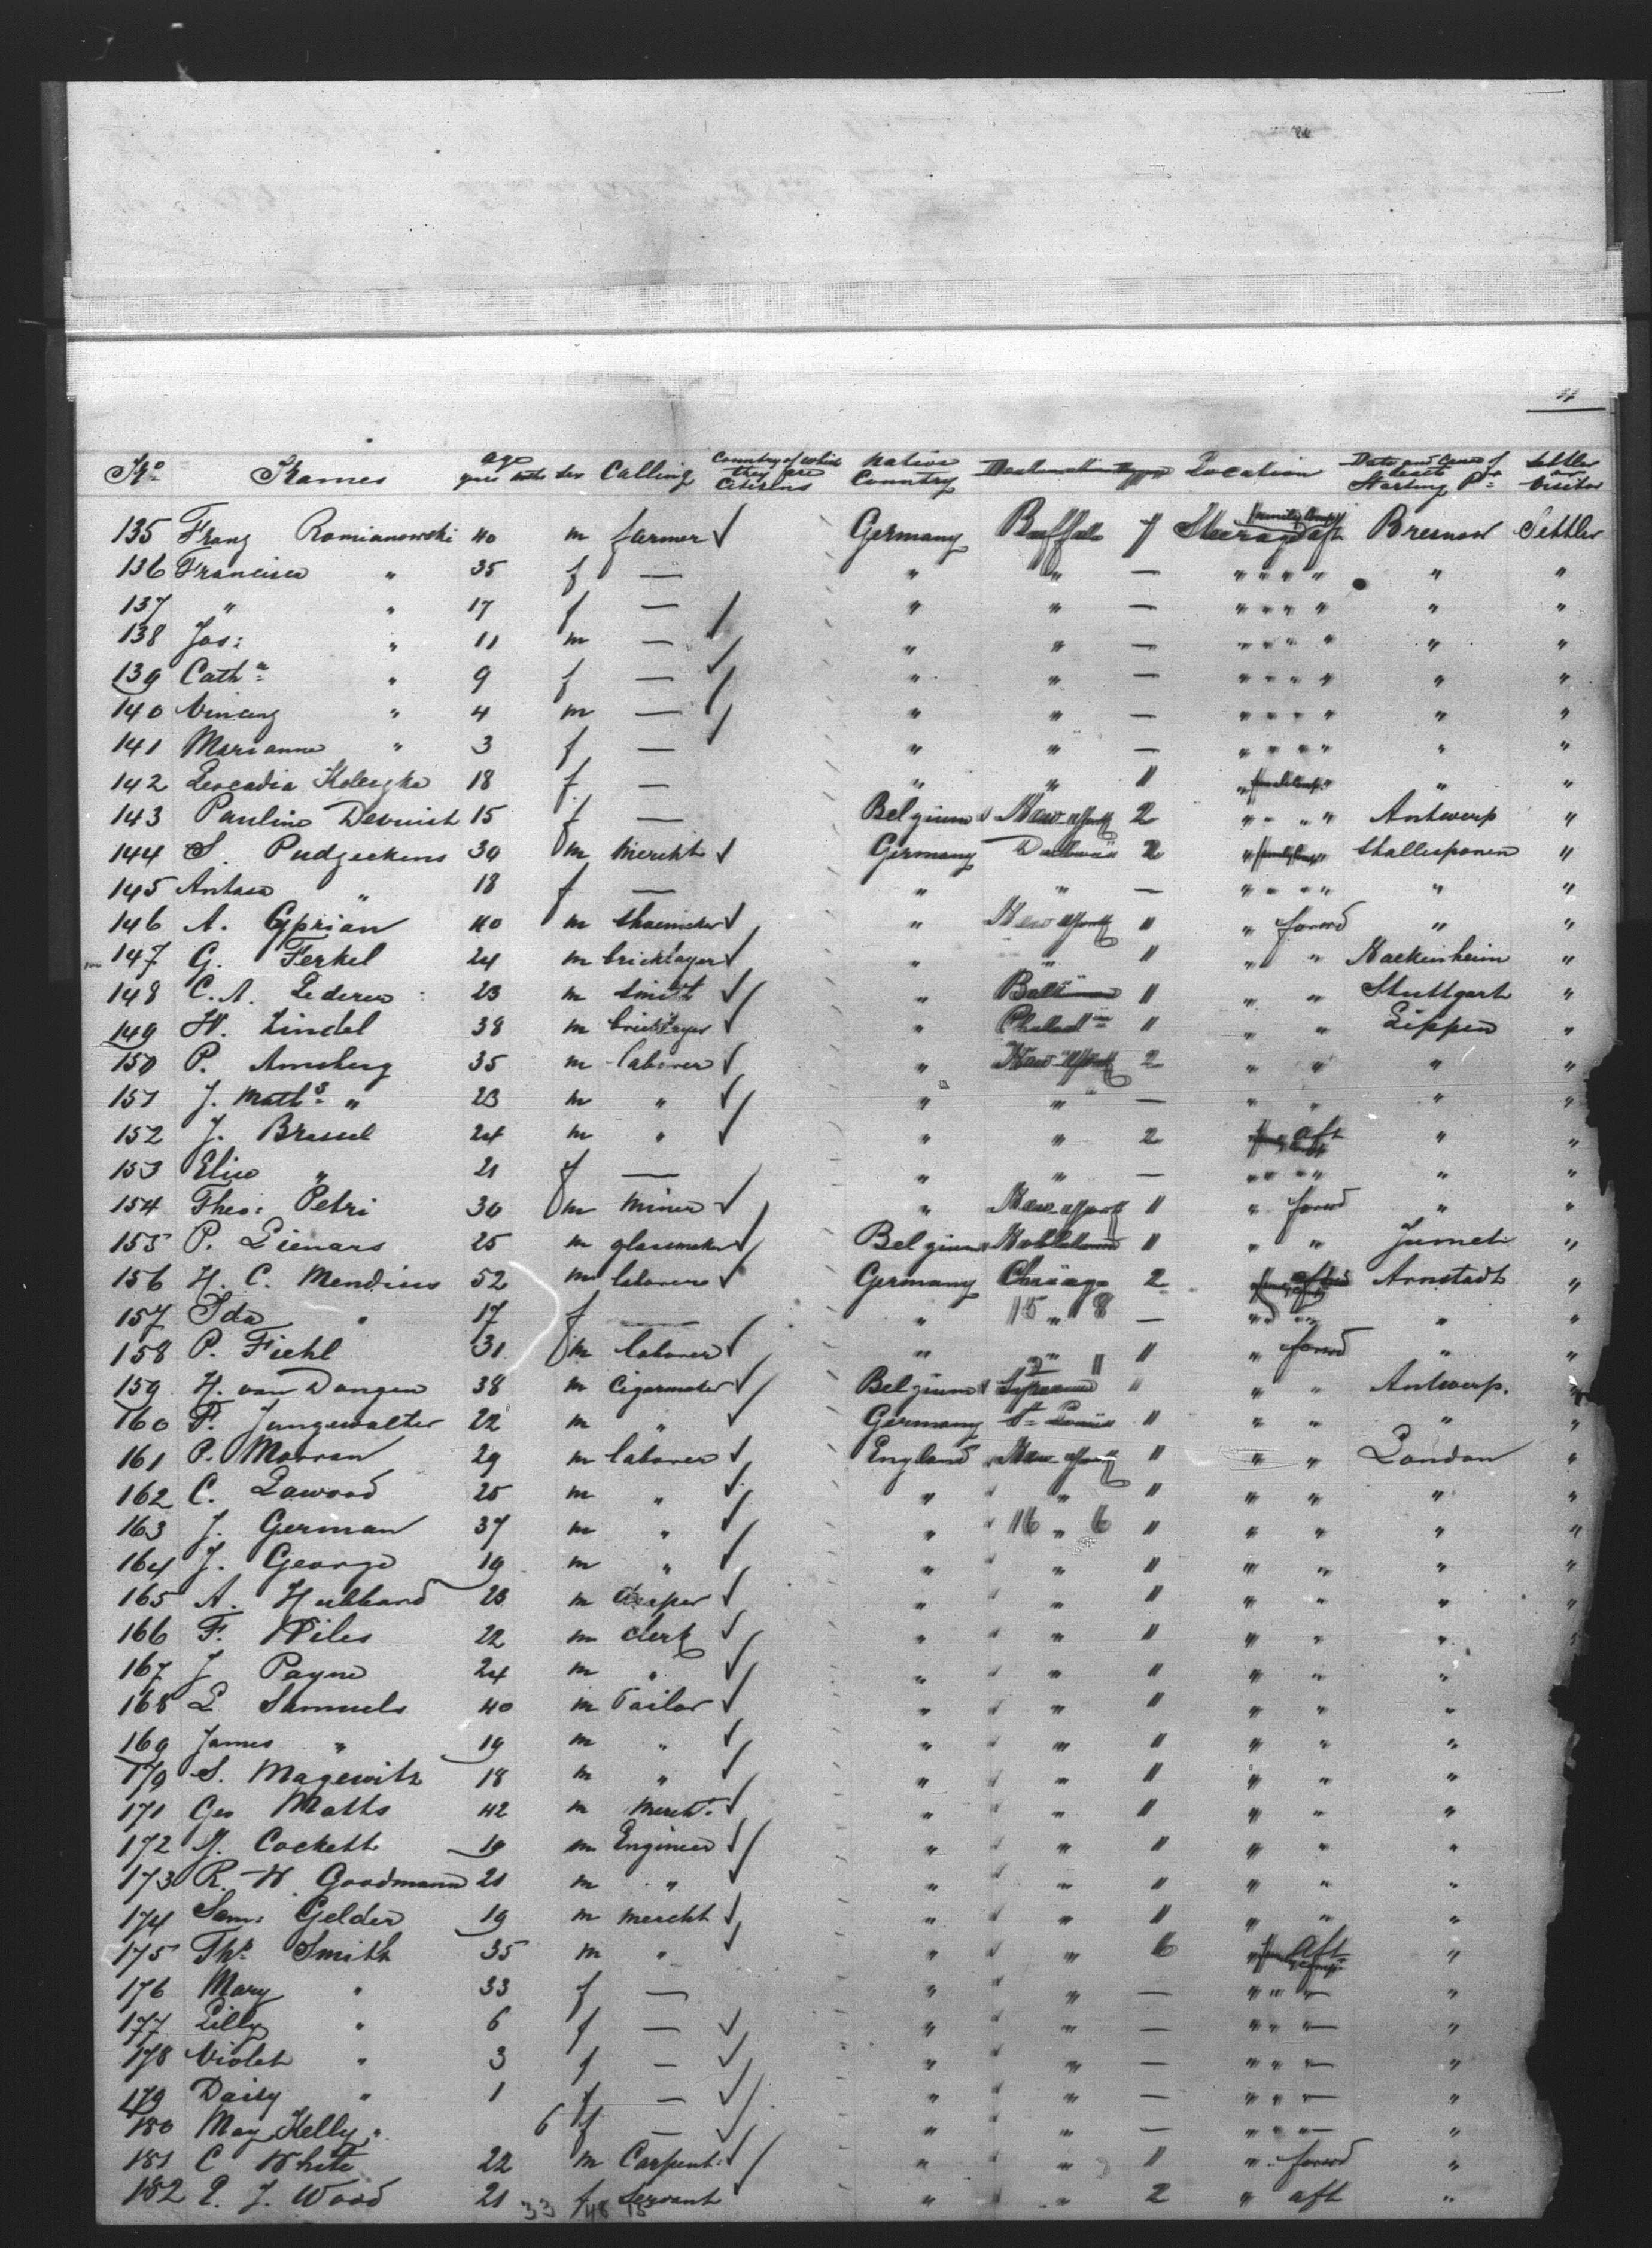 11
No Names age yrs mths sex Calling Country of which they are Citizens Native Country Destination Location Date and Cause of death Starting Pt Settler or Visitor
135 Franz Romianowski 40 m farmer Germany Buffalo 7 Steerage aft Bresnow Settler
136 Francisca " 35 f — " " — " " " " " "
137 " " 17 f — " " — " " " " " "
138 Jos: " 11 m — " " — " " " " " "
139 Cath a " 9 f — " " — " " " " " "
140 Vincenz " 4 m — " " — " " " " " "
141 Marianna " 3 f — " " — " " " " " "
142 Leocadia 18 f — " " 1 " " "
143 Pauline Devuist 15 f — Belgium New York 2 " " " " Antwerp "
144 S. Pudzeckens 39 m Mercht Germany 2 " Stalluponen "
145 " 18 f — " " — " " " " " "
146 A. Cyprian 40 m Shoemaker " New York 1 " forwd " "
147 G. Ferkel 24 m bricklayer " " 1 " " Hackenheim "
148 C. A. Lederer 23 m Smith " 1 " " Stuttgart "
149 W. Lindel 38 m bricklayer " Philad 1 " " Lippen "
150 P. Arnsberg 35 m laborer " New York 2 " " " "
151 J. Maths " 23 m " " " — " " " "
152 J. Bressel 24 m " " " 2 aft " "
153 Elise " 21 f — " " — " " " " " "
154 Theo: Petri 30 m Miner " New York 1 " forwd " "
155 P. Lienars 25 m glassmaker Belgium 1 " " Jumet "
156 H. C. Mendius 52 m laborer Germany Chicago 2 aft Arnstadt "
157 Ida " 17 f — " 15 " 8 — " " " " "
158 P. Fiehl 31 m laborer " " 11 1 " forwd " "
159 H. van Dongen 38 m Cigarmaker Belgium " " " Antwerp. "
160 F. Jungewalter 22 m " Germany St Louis 1 " " " "
161 P. Morran 29 m laborer England New York 1 " " London "
162 C. Lawood 25 m " " " 1 " " " "
163 J. German 37 m " " 16 " 6 1 " " " "
164 J. George 19 m " " " 1 " " " "
165 A. Hubbard 23 m " " 1 " " " "
166 F. Wiles 22 m clerk " " 1 " " " "
167 J Payne 24 m " " " 1 " " "
168 L Samuels 40 m Tailor " " 1 " " "
169 James " 19 m " " " 1 " " "
170 S. Magewitz 18 m " " " 1 " " "
171 Geo Matts 42 m Mercht. " " 1 " " "
172 Cockett 19 m Engineer " " 1 " " "
173 R. H. Goodmann 21 m " " " 1 " " "
174 Sam: Gelder 19 m mercht " " 1 " " "
175 Ths. Smith 35 m " " " 6 " Aft "
176 Mary " 33 f — " " — " " — "
177 Lilly " 6 f — " " — " " — "
178 Violet " 3 f — " " — " " — "
179 Daisy " 1 f — " " — " " — "
180 May Kelly " 6 f — " " — " " — "
181 C White 22 m Carpent: " " 1 " forwd "
182 E. J. Wood 21 f Servant " " 2 " aft "
33 48 15